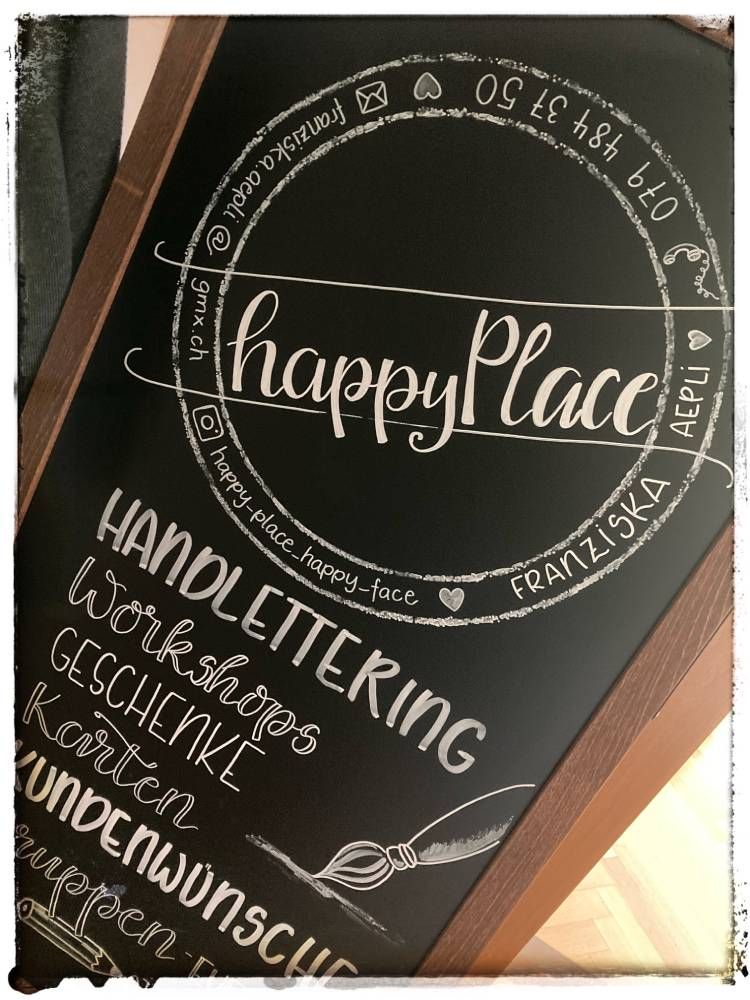 happyPlace
franziska.aepli@gmx.ch
079 484 37 50
FRANZISKA AEPLI
happy_place_happy_face
HANDLETTERING
Workshops
GESCHENKE
Karten
KUNDENWÜNSCHE